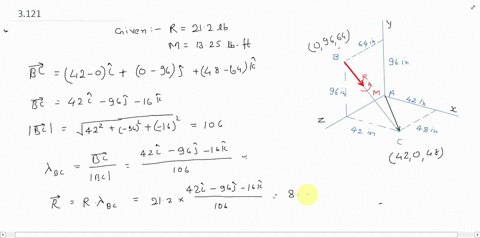 3.121
Given:- R = 21.2 lb
M = 13.25 lb.ft
BC = (42-0)î + (0-96)ĵ + (48-64)k̂
BC = 42î - 96ĵ - 16k̂
|BC| = √42² + (-96)² + (-16)² = 106
λBC = BC / |BC| = 42î - 96ĵ - 16k̂ / 106
R = R λBC = 21.2 × 42î - 96ĵ - 16k̂ / 106 = 8
y
(0,96,64)
64 in
B
96 in
R
96 in
M
A
42 in
x
z
42 in
48 in
C
(42,0,48)